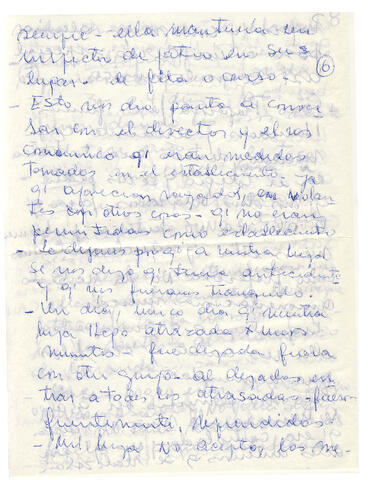 siempre - ella mantenía un
inspector de patio en sus
lugar - de fila o curso -
6
- Esto nos dio punto a conver
sar con el director y él nos
comunicó q' eran medidas
tomadas en el establecimiento - ya
q' aparecían rayados en
tes con otras cosas - q' no eran
permitidas como establecimiento
- Le dijimos porq' a nuestra hija
Se nos dijo q' tenía antecedentes
y q' nos fuéramos tranquilo.
- Un día, único día q' nuestra
hija llegó atrasada unos
minutos - fue dejada fuera
con otro grupo - al dejarlos en
trar a todos los atrasados - fueron
fuertemente, reprendidos -
- Mi hija no aceptó, los me-